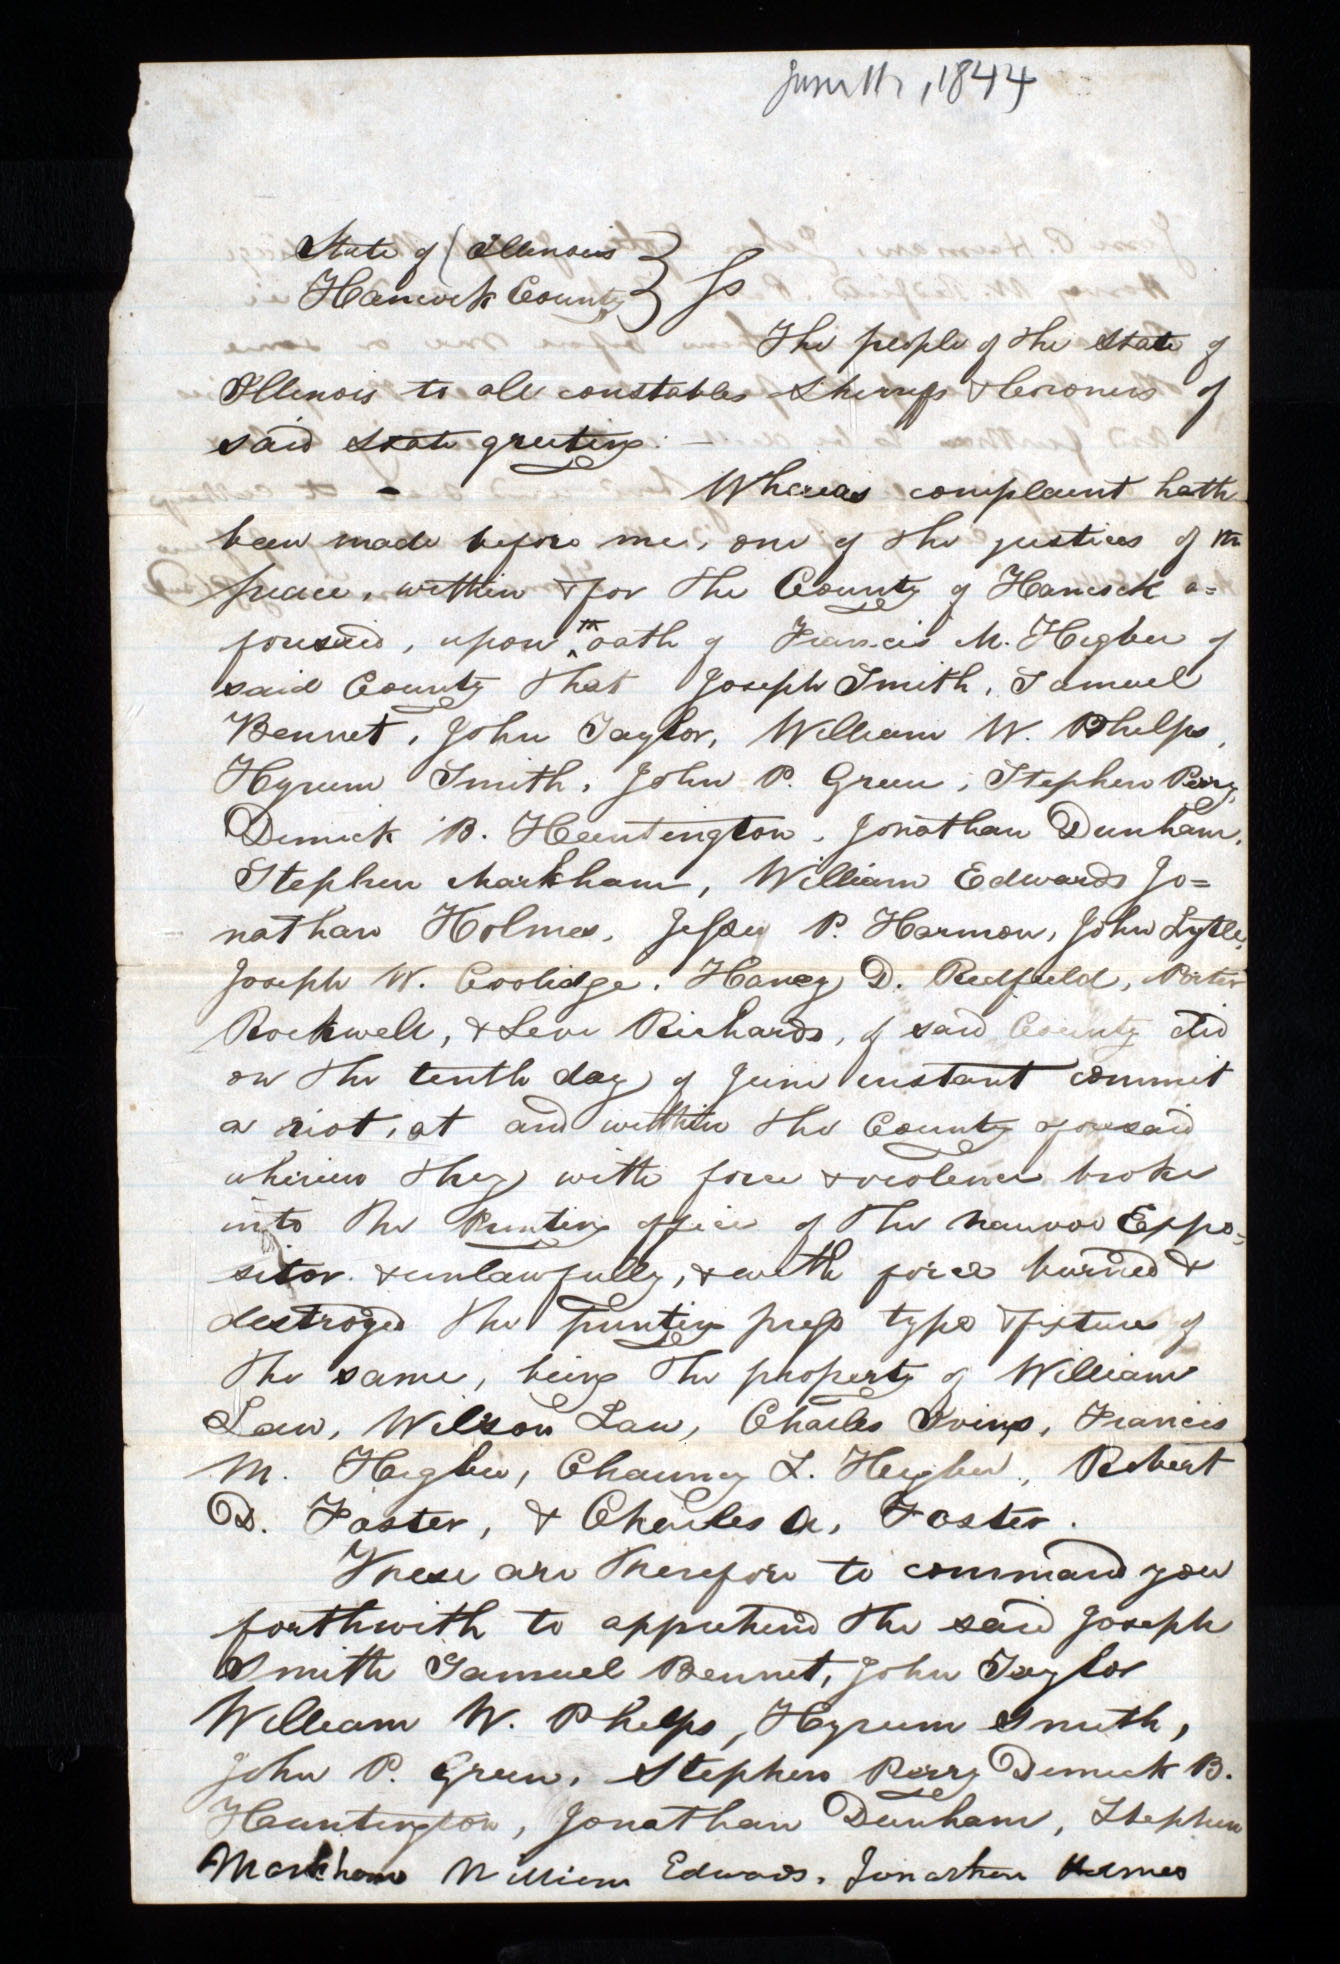 June 11, 1844
State of Illinois } ss
Hancock County }
The people of the State of
Illinois to all constables Sheriffs & Coroners of
said State greeting: —
Whereas complaint hath
been made before me, one of the justices of the
peace, within & for the County of Hancock a=
foresaid, upon the oath of Francis M. Higbee of
said County that Joseph Smith, Samuel
Bennet, John Taylor, William W. Phelps,
Hyrum Smith, John P. Green, Stephen Perry,
Dimick B. Huntington, Jonathan Dunham,
Stephen Markham, William Edwards Jo=
nathan Holmes, Jessee P. Harmon, John Lytle,
Joseph W. Coolidge, Harvey D. Redfield, Porter
Rockwell, & Levi Richards, of said County did
on the tenth day of June instant commit
a riot, at and within the County aforesaid
wherein they with force & violence broke
into the Printing office of the Nauvoo Expo=
sitor & unlawfully, & with force burned &
destroyed the printing press type & fixtures of
the same, being the property of William
Law, Wilson Law, Charles Ivins, Francis
M. Higbee, Chauncy L. Higbee, Robert
D. Foster, & Charles A. Foster.
These are therefore to command you
forthwith to apprehend the said Joseph
Smith Samuel Bennet, John Taylor
William W. Phelps, Hyrum Smith,
John P. Green, Stephen Perry Dimick B.
Huntington, Jonathan Dunham, Stephen
Markham William Edwards, Jonathan Holmes